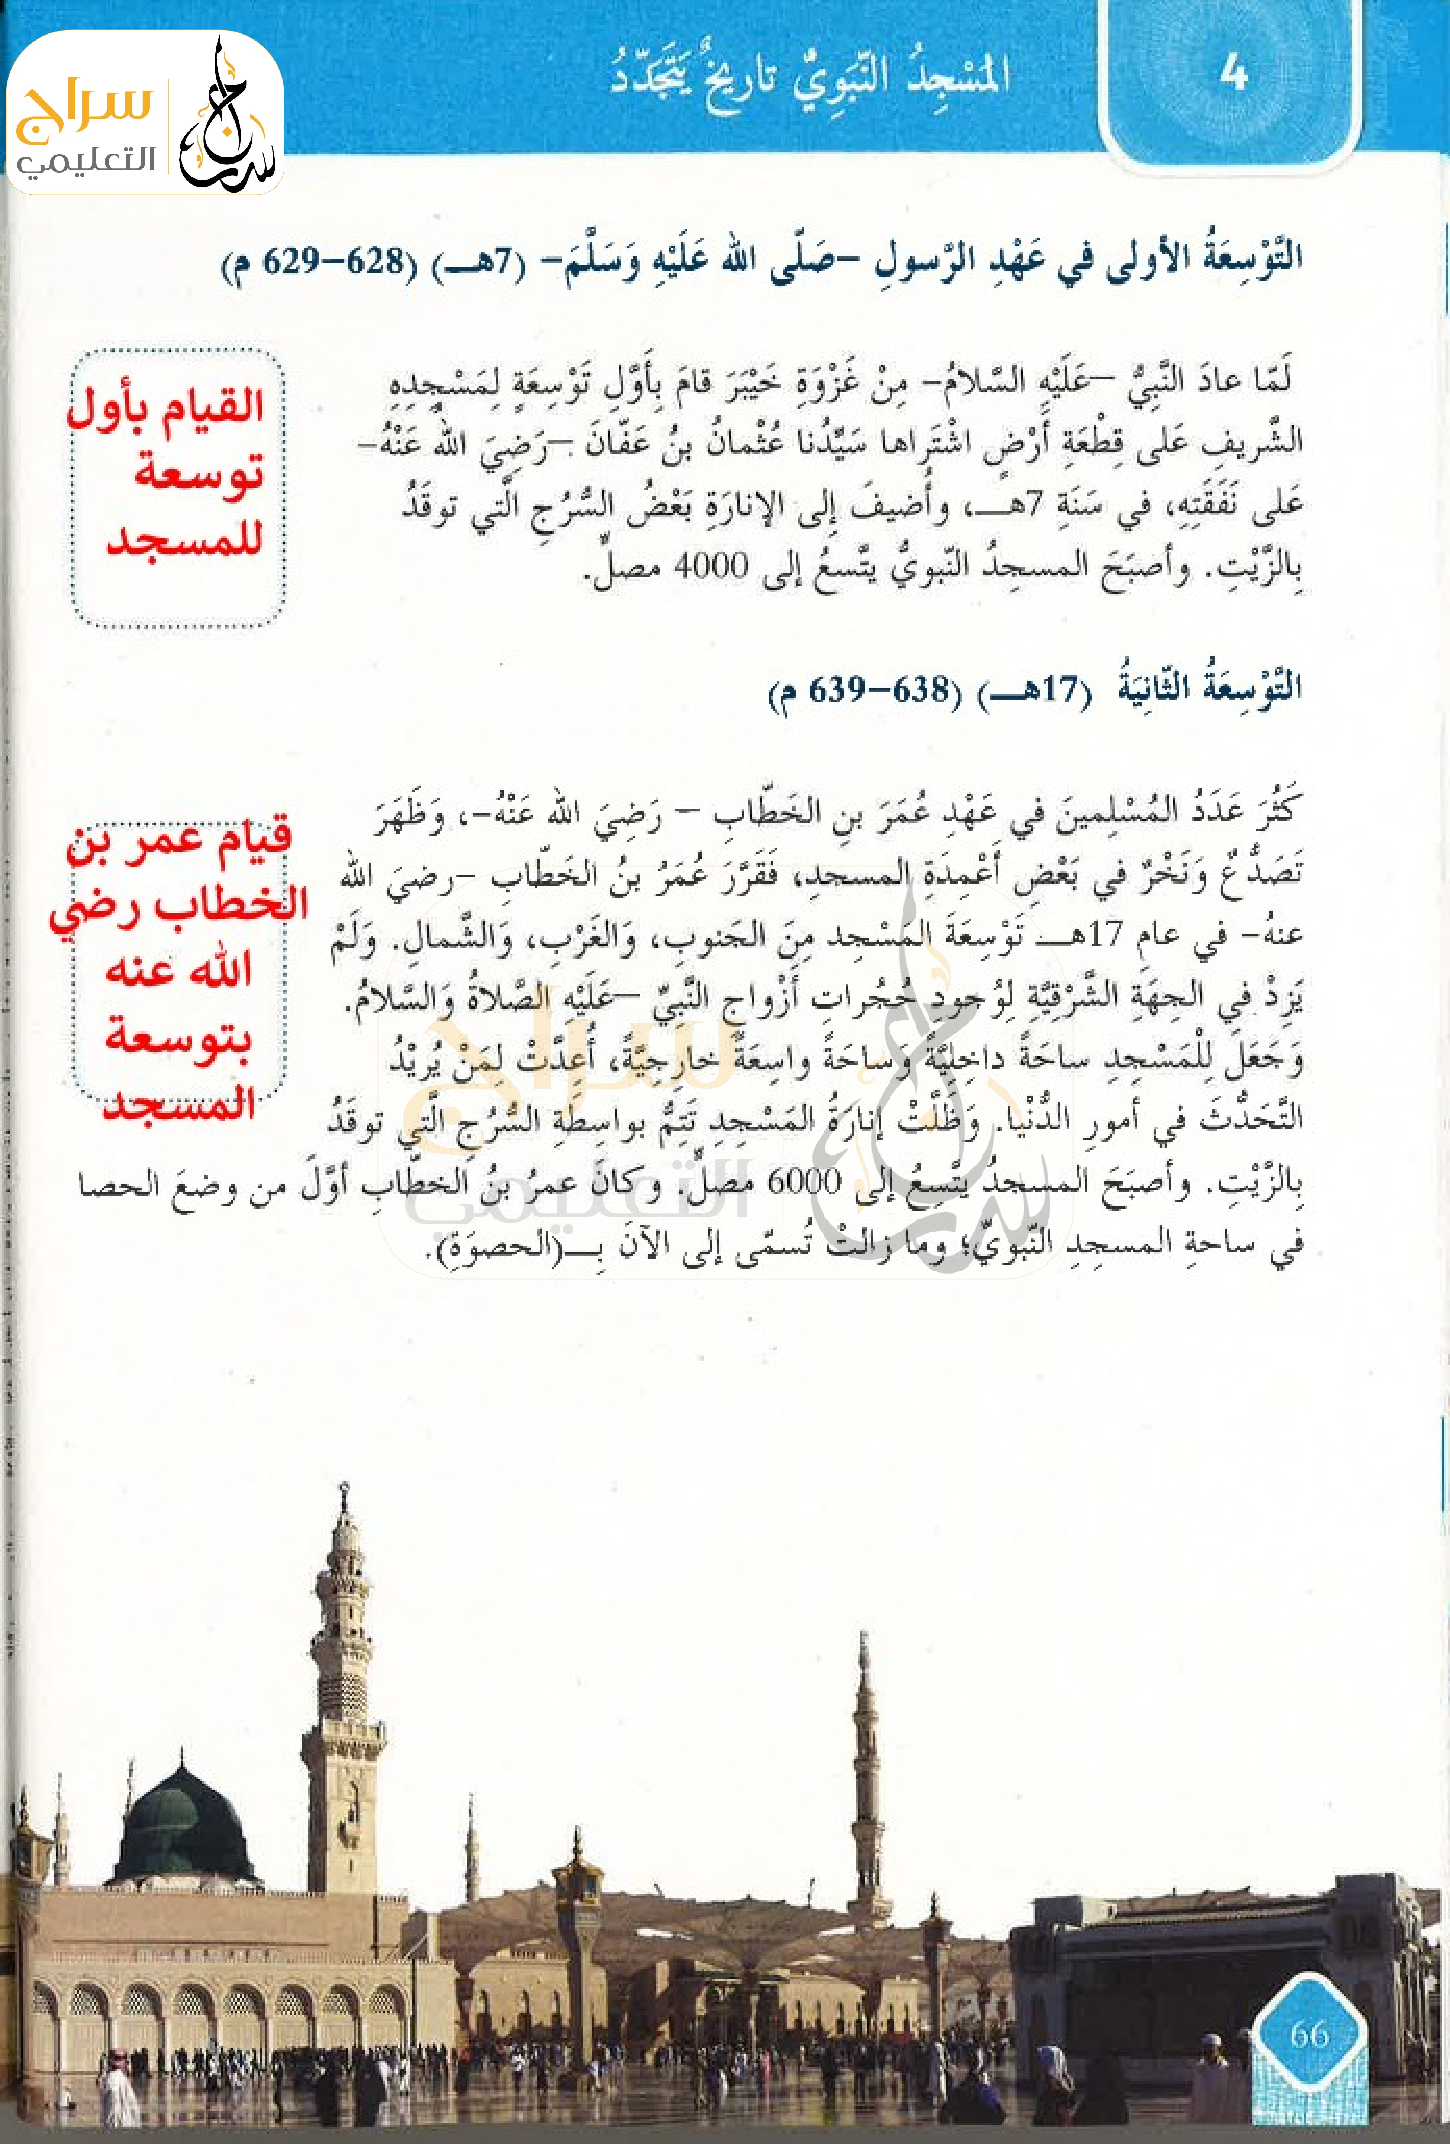 سراج
التعليمي
4
المَسْجِدُ النَّبَوِيُّ تاريخٌ يَتَجَدَّدُ
التَّوْسِعَةُ الأولى في عَهْدِ الرَّسولِ –صَلّى الله عَلَيْهِ وَسَلَّمَ– (7هـ) (628–629 م)
لَمّا عادَ النَّبِيُّ –عَلَيْهِ السَّلامُ– مِنْ غَزْوَةِ خَيْبَرَ قامَ بِأَوَّلِ تَوْسِعَةٍ لِمَسْجِدِهِ
الشَّريفِ عَلى قِطْعَةِ أَرْضٍ اشْتَراها سَيِّدُنا عُثْمانُ بنُ عَفّانَ –رَضِيَ اللهُ عَنْهُ–
عَلى نَفَقَتِهِ، في سَنَةِ 7هـ، وأُضيفَ إلى الإنارَةِ بَعْضُ السُّرُجِ الَّتي توقَدُ
بِالزَّيْتِ. وأصبَحَ المسجِدُ النّبويُّ يتَّسعُ إلى 4000 مصلٍّ.
القيام بأول
توسعة
للمسجد
التَّوْسِعَةُ الثّانِيَةُ (17هـ) (638–639 م)
كَثُرَ عَدَدُ المُسْلِمينَ في عَهْدِ عُمَرَ بنِ الخَطّابِ – رَضِيَ الله عَنْهُ–، وَظَهَرَ
تَصَدُّعٌ وَنَخْرٌ في بَعْضِ أَعْمِدَةِ المسجدِ، فَقَرَّرَ عُمَرُ بنُ الخَطّابِ –رضيَ الله
عنهُ– في عامِ 17هـ تَوْسِعَةَ المَسْجِدِ مِنَ الجَنوبِ، وَالغَرْبِ، وَالشَّمالِ. وَلَمْ
يَزِدْ في الجِهَةِ الشَّرْقِيَّةِ لِوُجودِ حُجُراتِ أَزْواجِ النَّبِيِّ –عَلَيْهِ الصَّلاةُ وَالسَّلامُ.
وَجَعَلَ لِلْمَسْجِدِ ساحَةً داخِلِيَّةً وَساحَةً واسِعَةً خارِجِيَّةً، أُعِدَّتْ لِمَنْ يُرِيْدُ
التَّحَدُّثَ في أمورِ الدُّنْيا. وَظَلَّتْ إنارَةُ المَسْجِدِ تَتِمُّ بواسِطَةِ السُّرُجِ الَّتي توقَدُ
بِالزَّيْتِ. وأصبَحَ المسجدُ يتَّسِعُ إلى 6000 مصلٍّ. وكانَ عمرُ بنُ الخطّابِ أوَّلَ من وضعَ الحصا
في ساحةِ المسجدِ النّبويِّ؛ وما زالتْ تُسمّى إلى الآنَ بِـ(الحصوَةِ).
قيام عمر بن
الخطاب رضي
الله عنه
بتوسعة
المسجد
سراج
التعليمي
66